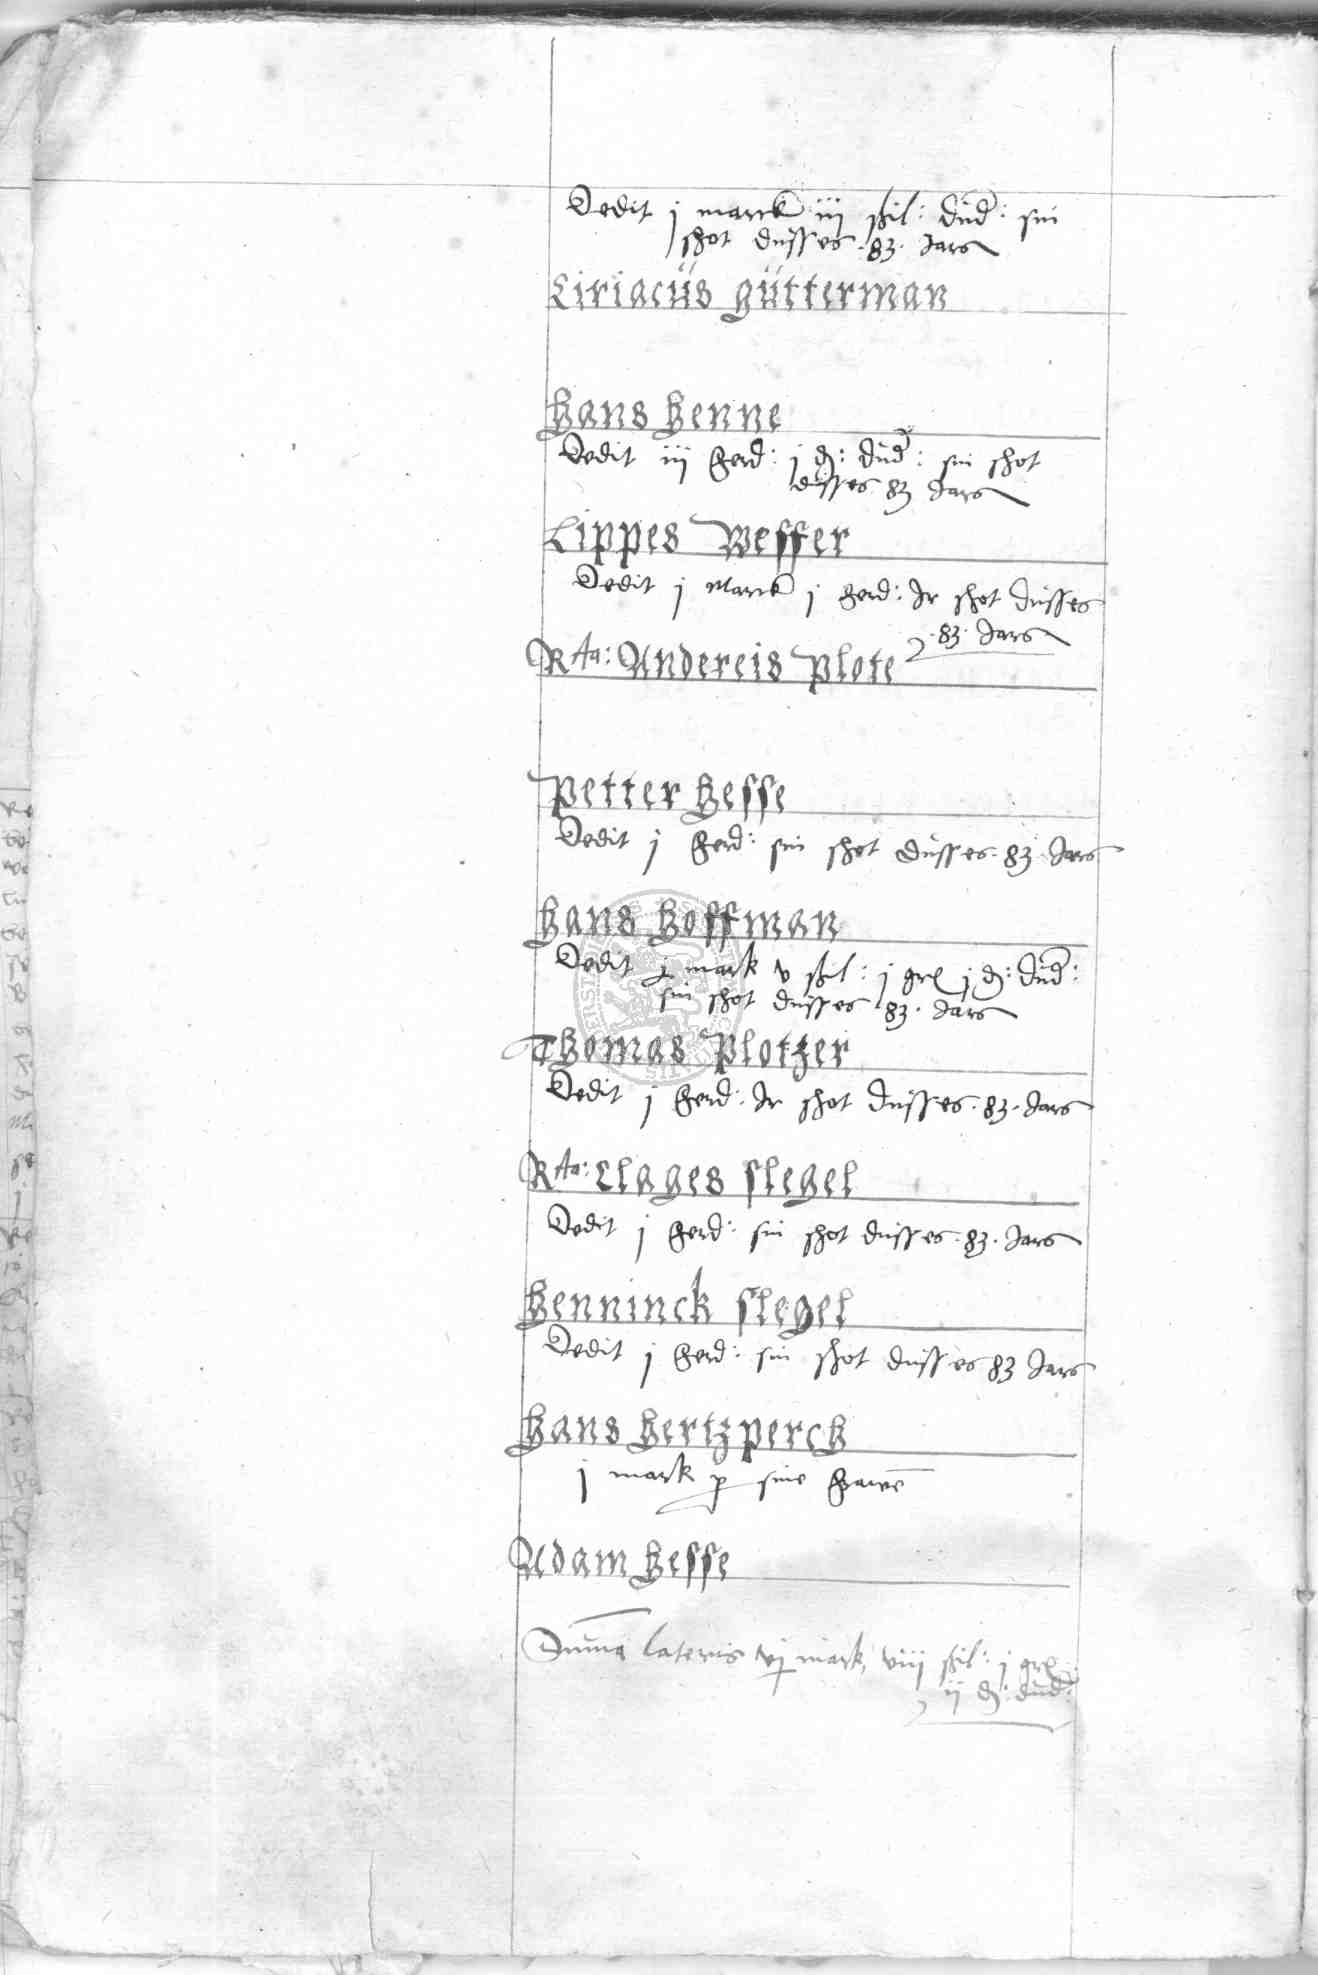 Dedit j marck iij ßil: dud: sin
shot dusses 83. Jars
Ciriacus gütterman
Hans Henne
Dedit iij ferd: j d: dud: sin shot
dusses 83 Jars
Lippes Weffer
Dedit j Marck j ferd: Jr shot dusses
.83. Jars
Rta: Andereis Plote
Petter Hesse
Dedit j ferd: sin shot dusses. 83. Jars
Hans Hoffman
Dedit j mark v ßil: j grl j d: dud:
sin shot dusses 83. Jars
Thomas Plotzer
Dedit j ferd: Jr shot dusses. 83. Jars
Rta: Clages slegel
Dedit j ferd: sin shot dusses. 83. Jars
Henninck slegel
Dedit j ferd: sin shot dusses 83 Jars
Hans Hertzperch
j mark p sine
Adam Hesse
Suma lateris vj mark, viij ßil: j grl
ij d: dud: